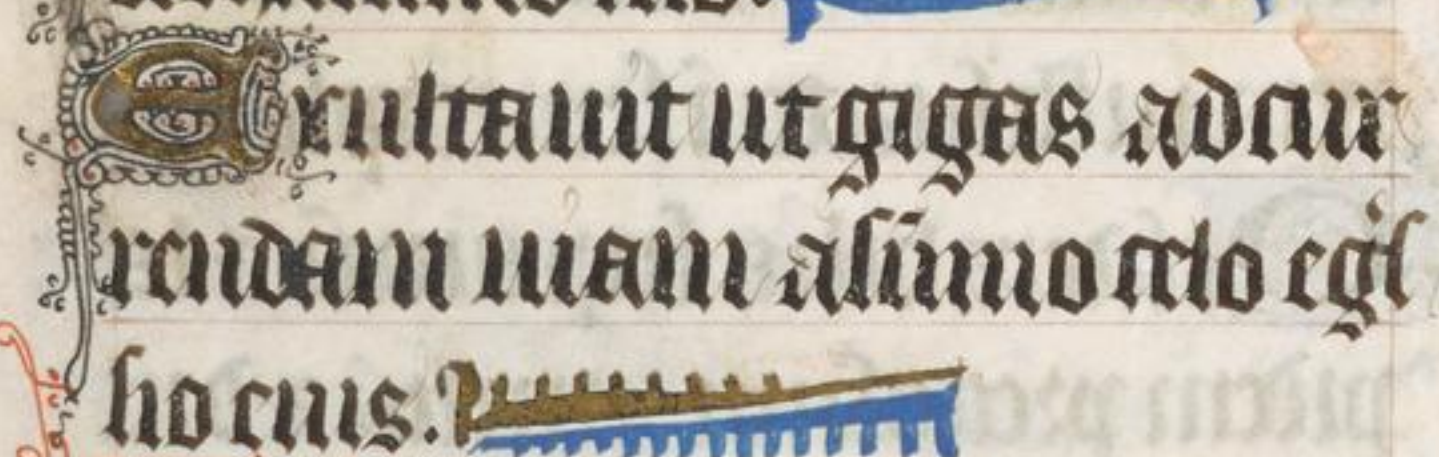 Exultauit ut gigas ad cur
rendam uiam a summo celo egs
sio eius.